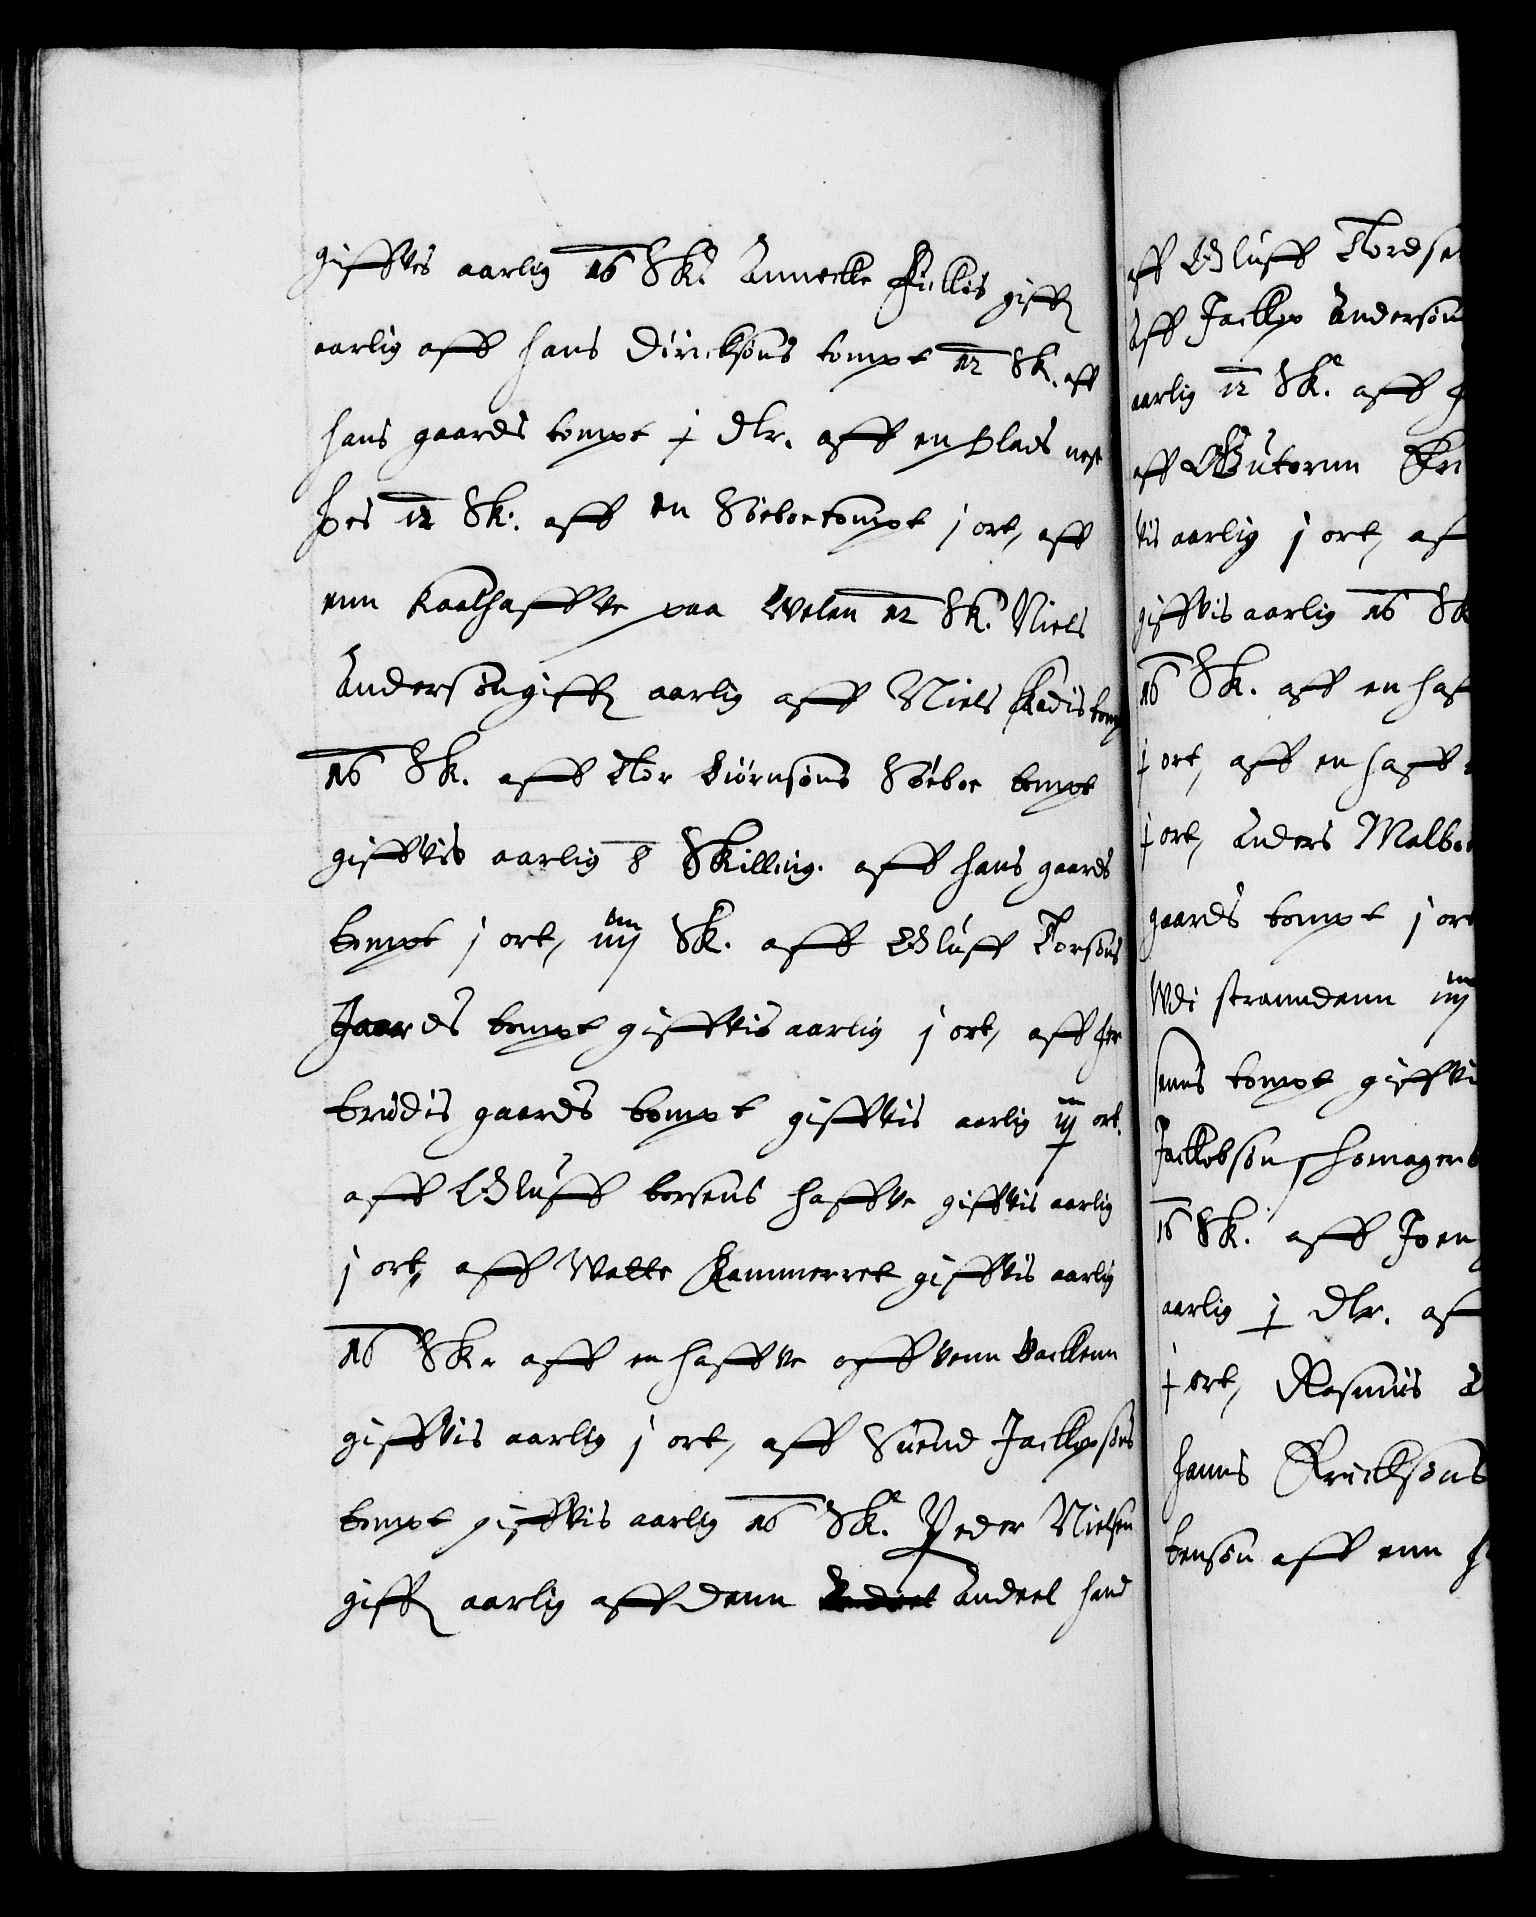 giffves aarlig 16 Sk. Annecke Fullis giffr
aarlig aff hans Dircksøns tompt 12 Sk. aff
hans gaards tompt j dlr. aff en plads nest
hos 12 Sk. aff en Søeboe tompt j ort, aff
enn Kaalhaffve paa Welen 12 Sk. Niels
Andersøn giffr aarlig aff Niels tomp
16 Sk. aff Tor Biørnsøns Søeboe tompt
giffvis aarlig 8 Skilling. aff hans gaards
tompt j ort, iiij Sk. aff Oluff Torsøns
gaards tompt giffvis aarlig j ort, aff
brudis gaards tompt giffvis aarlig iij ort.
aff Oluff torsens haffve giffvis aarlig
j ort, aff Watte Kammerret giffvis aarlig
16 Sk. aff en haffve offvenn backenn
giffvis aarlig j ort, aff Suend Jacopsøns
tompt giffvis aarlig 16 Sk. Peder Nielsøn
giffr aarlig aff denn Andeel hand
aff Oluff Tordse
Aff Jackop Andersøn
aarlig 12 Sk. aff
aff Gutorm
vis aarlig j ort, aff
giffvis aarlig 16 Sk
16 Sk. aff en haf
j ort, aff en haff
j ort, Anders
gaards tompt j ort
Wdi stranndenn iiij
sønns tompt giffvi
Jackobsøn
16 Sk. aff Joen
aarlig j dlr. aff
j ort, Rasmus
hanns Ericksøns
tensøn aff enn